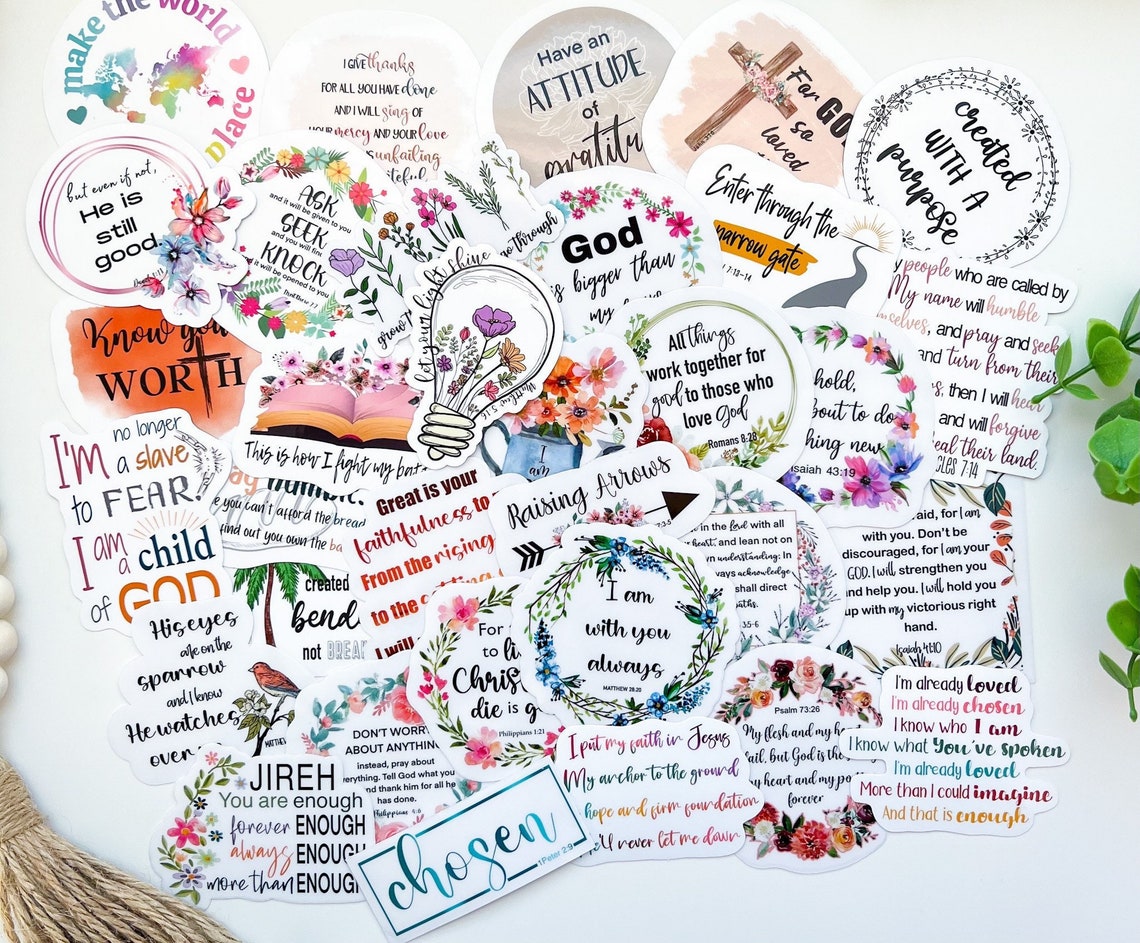 make the world
place
I GIVE thanks
FOR ALL YOU HAVE done
AND I WILL sing OF
YOUR mercy AND YOUR love
unfailing
Have an
ATTITUDE
of
gratitu
For GOD
so
loved
created
WITH A
purpose
but even if not,
He is
still
good.
ASK
and it will be given to you
SEEK
and you will find
KNOCK
and it will be opened to you
Matthew 7:7
grow
go through
God
is bigger than
my
Enter through the
narrow gate
7:13-14
my people who are called by
My name will humble
selves, and pray and seek
and turn from their
s, then I will hear
and will forgive
heal their land.
CLES 7:14
Know you
WORTH
let your light shine
Matthew 5:16
This is how I fight my bat
I am
All things
work together for
good to those who
love God
Romans 8:28
hold,
bout to do
hing new
Isaiah 43:19
I'm no longer
a slave
to FEAR!
I am
a child
of GOD
humble.
e you can't afford the bread
find out you own the ba
Great is your
faithfulness to
From the rising
to the
I will
Raising Arrows
in the Lord with all
heart, and lean not on
own understanding; In
ways acknowledge
shall direct
paths.
3:5-6
aid, for I am
with you. Don't be
discouraged, for I am your
GOD. I will strengthen you
and help you. I will hold you
up with my victorious right
hand.
Isaiah 41:10
created
bend
not BREAK
His eyes
are on the
sparrow
and I know
He watches
over
For
to li
Chris
die is g
Philippians 1:21
I am
with you
always
MATTHEW 28:20
DON'T WORRY
ABOUT ANYTHING
instead, pray about
everything. Tell God what you
and thank him for all he
has done.
Philippians 4:6
Psalm 73:26
My flesh and my he
fail, but God is the
my heart and my po
forever
I'm already loved
I'm already chosen
I know who I am
I know what You've spoken
I'm already loved
More than I could imagine
And that is enough
JIREH
You are enough
forever ENOUGH
always ENOUGH
more than ENOUGH
I put my faith in Jesus
My anchor to the ground
hope and firm foundation
He'll never let me down
chosen
1 Peter 2:9